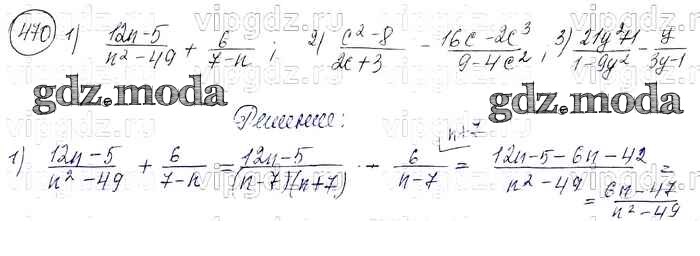 470 1) (12n-5)/(n²-49) + 6/(7-n); 2) (c²-8)/(2c+3) - (16c-2c³)/(9-4c²), 3) (21y²+1)/(1-9y²) - y/(3y-1)
gdz.moda gdz.moda
Решение:
1) (12n-5)/(n²-49) + 6/(7-n) = (12n-5)/((n-7)(n+7)) - 6/(n-7) ⌊n+7 = (12n-5-6n-42)/(n²-49) =
= (6n-47)/(n²-49)